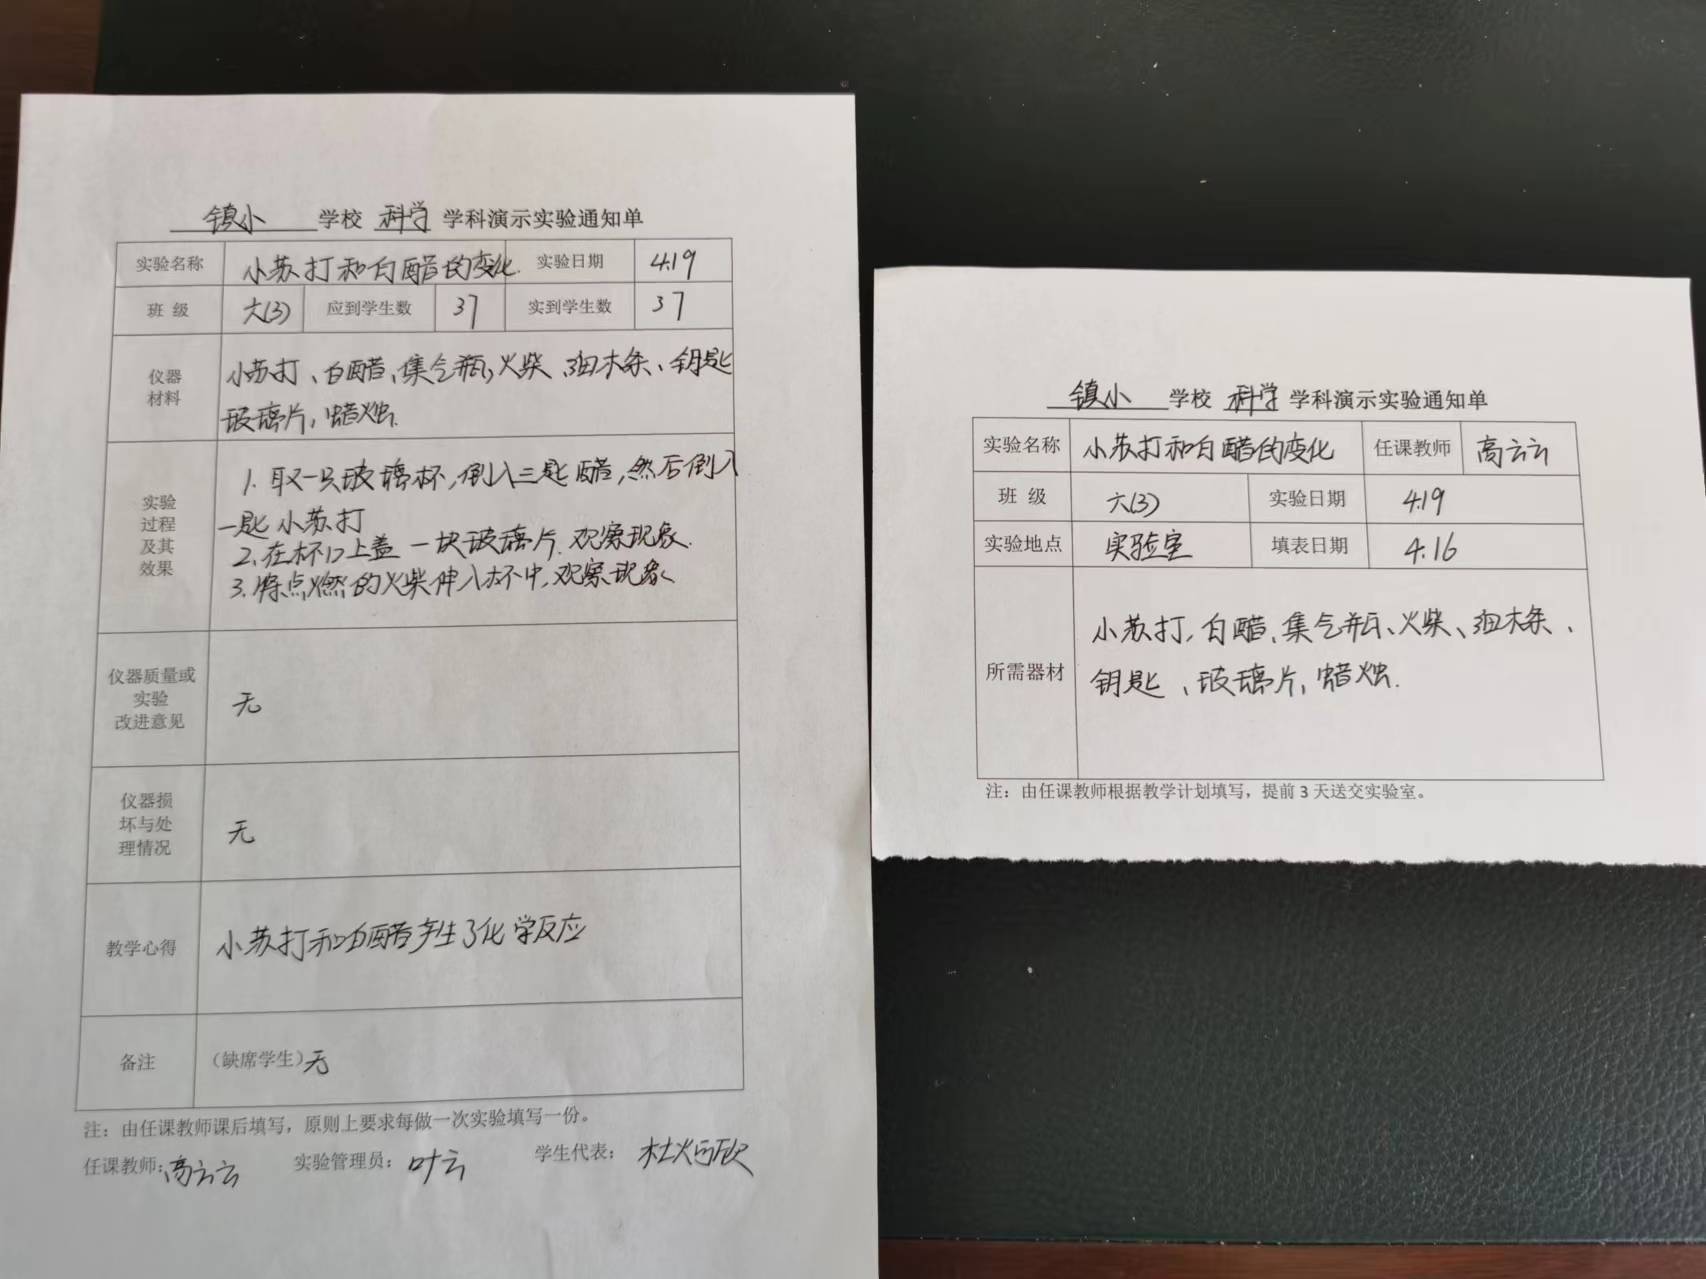 镇小 学校 科学 学科演示实验通知单
实验名称 小苏打和白醋的变化 实验日期 4.19
班 级 六(3) 应到学生数 37 实到学生数 37
仪器
材料
小苏打、白醋、集气瓶、火柴、细木条、钥匙
玻璃片，蜡烛.
实验
过程
及其
效果
1. 取一只玻璃杯，倒入三匙醋，然后倒入
一匙小苏打
2. 在杯口上盖一块玻璃片.观察现象.
3. 将点燃的火柴伸入杯中，观察现象
仪器质量或
实验
改进意见
无
仪器损
坏与处
理情况
无
教学心得 小苏打和白醋产生了化学反应
备注 (缺席学生) 无
注：由任课教师课后填写，原则上要求每做一次实验填写一份。
任课教师：高云云 实验管理员：叶云 学生代表：杜
镇小 学校 科学 学科演示实验通知单
实验名称 小苏打和白醋的变化 任课教师 高云云
班 级 六(3) 实验日期 4.19
实验地点 实验室 填表日期 4.16
所需器材
小苏打，白醋、集气瓶、火柴、细木条、
钥匙、玻璃片，蜡烛.
注：由任课教师根据教学计划填写，提前 3 天送交实验室。